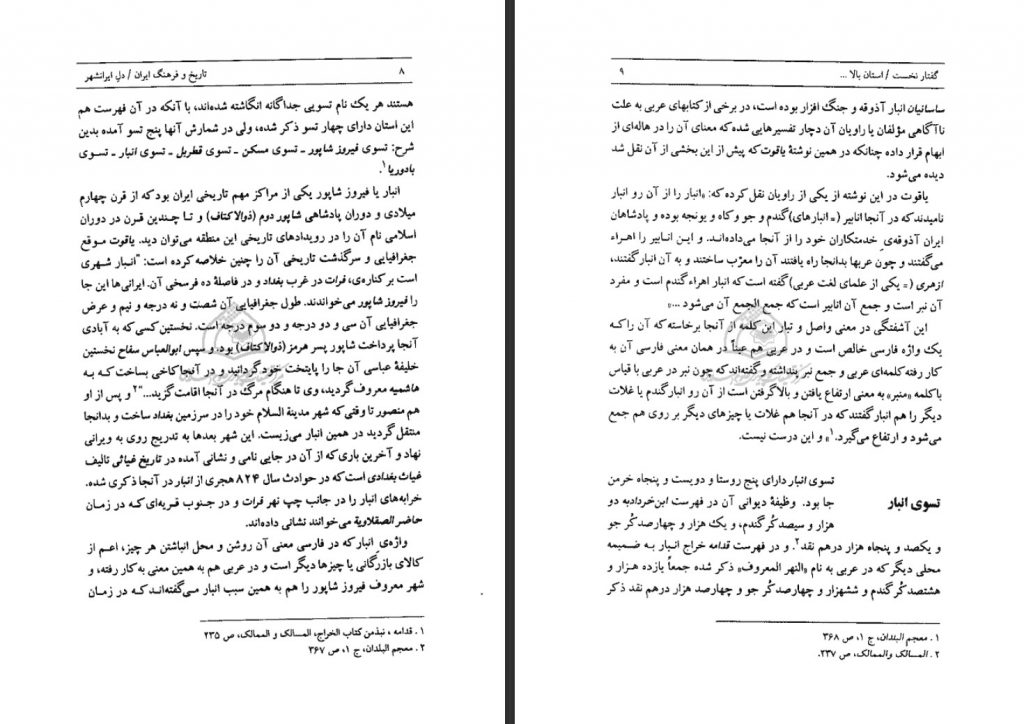 ۸ تاریخ و فرهنگ ایران / دلِ ایرانشهر
هستند هر یک نام تسویی جداگانه انگاشته شده‌اند، با آنکه در آن فهرست هم
این استان دارای چهار تسو ذکر شده، ولی در شمارش آنها پنج تسو آمده بدین
شرح: تسوی فیروز شاپور ـ تسوی مسکن ـ تسوی قطربل ـ تسوی انبار ـ تسوی
بادوریا۱.
انبار یا فیروز شاپور یکی از مراکز مهم تاریخی ایران بود که از قرن چهارم
میلادی و دوران پادشاهی شاپور دوم (ذوالاکتاف) و تـا چـندین قـرن در دوران
اسلامی نام آن را در رویدادهای تاریخی این منطقه می‌توان دید. یاقوت مـوقع
جغرافیایی و سرگذشت تاریخی آن را چنین خلاصه کرده است: "انـبار شـهری
است بر کناره‌ی، فرات در غرب بغداد و در فاصلهٔ ده فرسخی آن. ایرانی‌ها این جا
را فیروز شاپور می‌خواندند. طول جغرافیایی آن شصت و نه درجه و نیم و عرض
جغرافیایی آن سی و دو درجه و دو سوم درجه است. نخستین کسی که به آبادی
آنجا پرداخت شاپور پسر هرمز (ذوالاکتاف) بود. و سپس ابوالعباس سفاح نخستین
خلیفهٔ عباسی آن جا را پایتخت خود گردانید و در آنجا کاخی بساخت کـه بـه
هاشمیه معروف گردید، وی تا هنگام مرگ در آنجا اقامت گزید..."۲ و پس از او
هم منصور تا وقتی که شهر مدینة السلام خود را در سرزمین بغداد ساخت و بدانجا
منتقل گردید در همین انبار می‌زیست. این شهر بعدها به تدریج روی به ویرانی
نهاد و آخرین باری که از آن در جایی نامی و نشانی آمده در تاریخ غیاثی تالیف
غیاث بغدادی است که در حوادث سال ۸۲۴ هجری از انبار در آنجا ذکری شده.
خرابه‌های انبار را در جانب چپ نهر فرات و در جنوب قریه‌ای کـه در زمـان
حاضر الصقلاویة می‌خوانند نشانی داده‌اند.
واژه‌ی انبار که در فارسی معنی آن روشن و محل انباشتن هر چیز، اعـم از
کالای بازرگانی یا چیزها دیگر است و در عربی هم به همین معنی به کار رفته، و
شهر معروف فیروز شاپور را هم به همین سبب انبار مـی‌گفته‌انـد کـه در زمـان
۱ . قدامه ، نبذمن کتاب الخراج، المسالک و الممالک، ص ۲۳۵
۲ . معجم البلدان، ج ۱، ص ۳۶۷
گفتار نخست / استان بالا ... ۹
ساسانیان انبار آذوقه و جنگ افزار بوده است، در برخی از کتابهای عربی به علت
ناآگاهی مؤلفان یا راویان آن دچار تفسیرهایی شده که معنای آن را در هاله‌ای از
ابهام قرار داده چنانکه در همین نوشتهٔ یاقوت که پیش از این بخشی از آن نقل شد
دیده می‌شود.
یاقوت در این نوشته از یکی از راویان نقل کرده که: «انبار را از آن رو انبار
نامیدند که در آنجا انابیر (= انبارهای) گندم و جو و کاه و یونجه بوده و پادشاهان
ایران آذوقه‌ی خدمتکاران خود را از آنجا می‌داده‌انـد. و ایـن انـابیر را اهـراء
می‌گفتند و چون عربها بدانجا راه یافتند آن را معرّب ساختند و به آن انبار گفتند،
ازهری (= یکی از علمای لغت عربی) گفته است که انبار اهراء گندم است و مفرد
آن نبر است و جمع آن انابیر است که جمع الجمع آن می‌شود ...»
این آشفتگی در معنی واصل و تبار این کلمه از آنجا برخاسته که آن را کـه
یک واژه فارسی خالص است و در عربی هم عیناً در همان معنی فارسی آن به
کار رفته کلمه‌ای عربی و جمع نبر پنداشته و گفته‌اند که چون نبر در عربی با قیاس
با کلمه «منبر» به معنی ارتفاع یافتن و بالا گرفتن است از آن رو انبار گندم یا غلات
دیگر را هم انبار گفتند که در آنجا هم غلات یا چیزهای دیگر بر روی هم جمع
می‌شود و ارتفاع می‌گیرد.۱» و این درست نیست.
تسوی انبار
تسوی انبار دارای پنج روستا و دویست و پنجاه خرمن
جا بود. وظیفهٔ دیوانی آن در فهرست ابن‌خردادبه دو
هزار و سیصد کُر گندم، و یک هزار و چهارصد کُر جو
و یکصد و پنجاه هزار درهم نقد۲. و در فهرست قدامه خراج انبـار بـه ضـمیمه
محلی دیگر که در عربی به نام «النهر المعروف» ذکر شده جمعاً یازده هـزار و
هشتصد کُر گندم و ششهزار و چهارصد کُر جو و چهارصد هزار درهم نقد ذکر
۱ . معجم البلدان، ج ۱، ص ۳۶۸
۲ . المسالک والممالک، ص ۲۳۷.